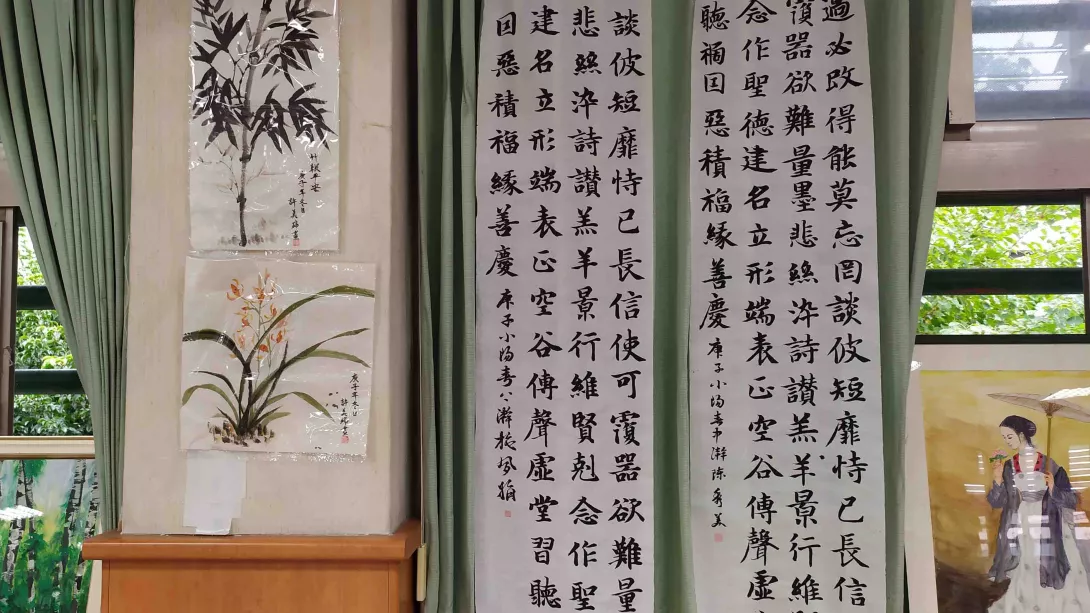 過必改得能莫忘罔談彼短靡恃己長信
覆器欲難量墨悲絲染詩讚羔羊景行維
念作聖德建名立形端表正空谷傳聲虛
聽禍因惡積福緣善慶 庚子小陽春中澣陳秀美
談彼短靡恃己長信使可覆器欲難量
悲絲染詩讚羔羊景行維賢剋念作聖
建名立形端表正空谷傳聲虛堂習聽
因惡積福緣善慶 庚子小陽春
竹報平安
庚子年冬日
許美
庚子年冬日
許美